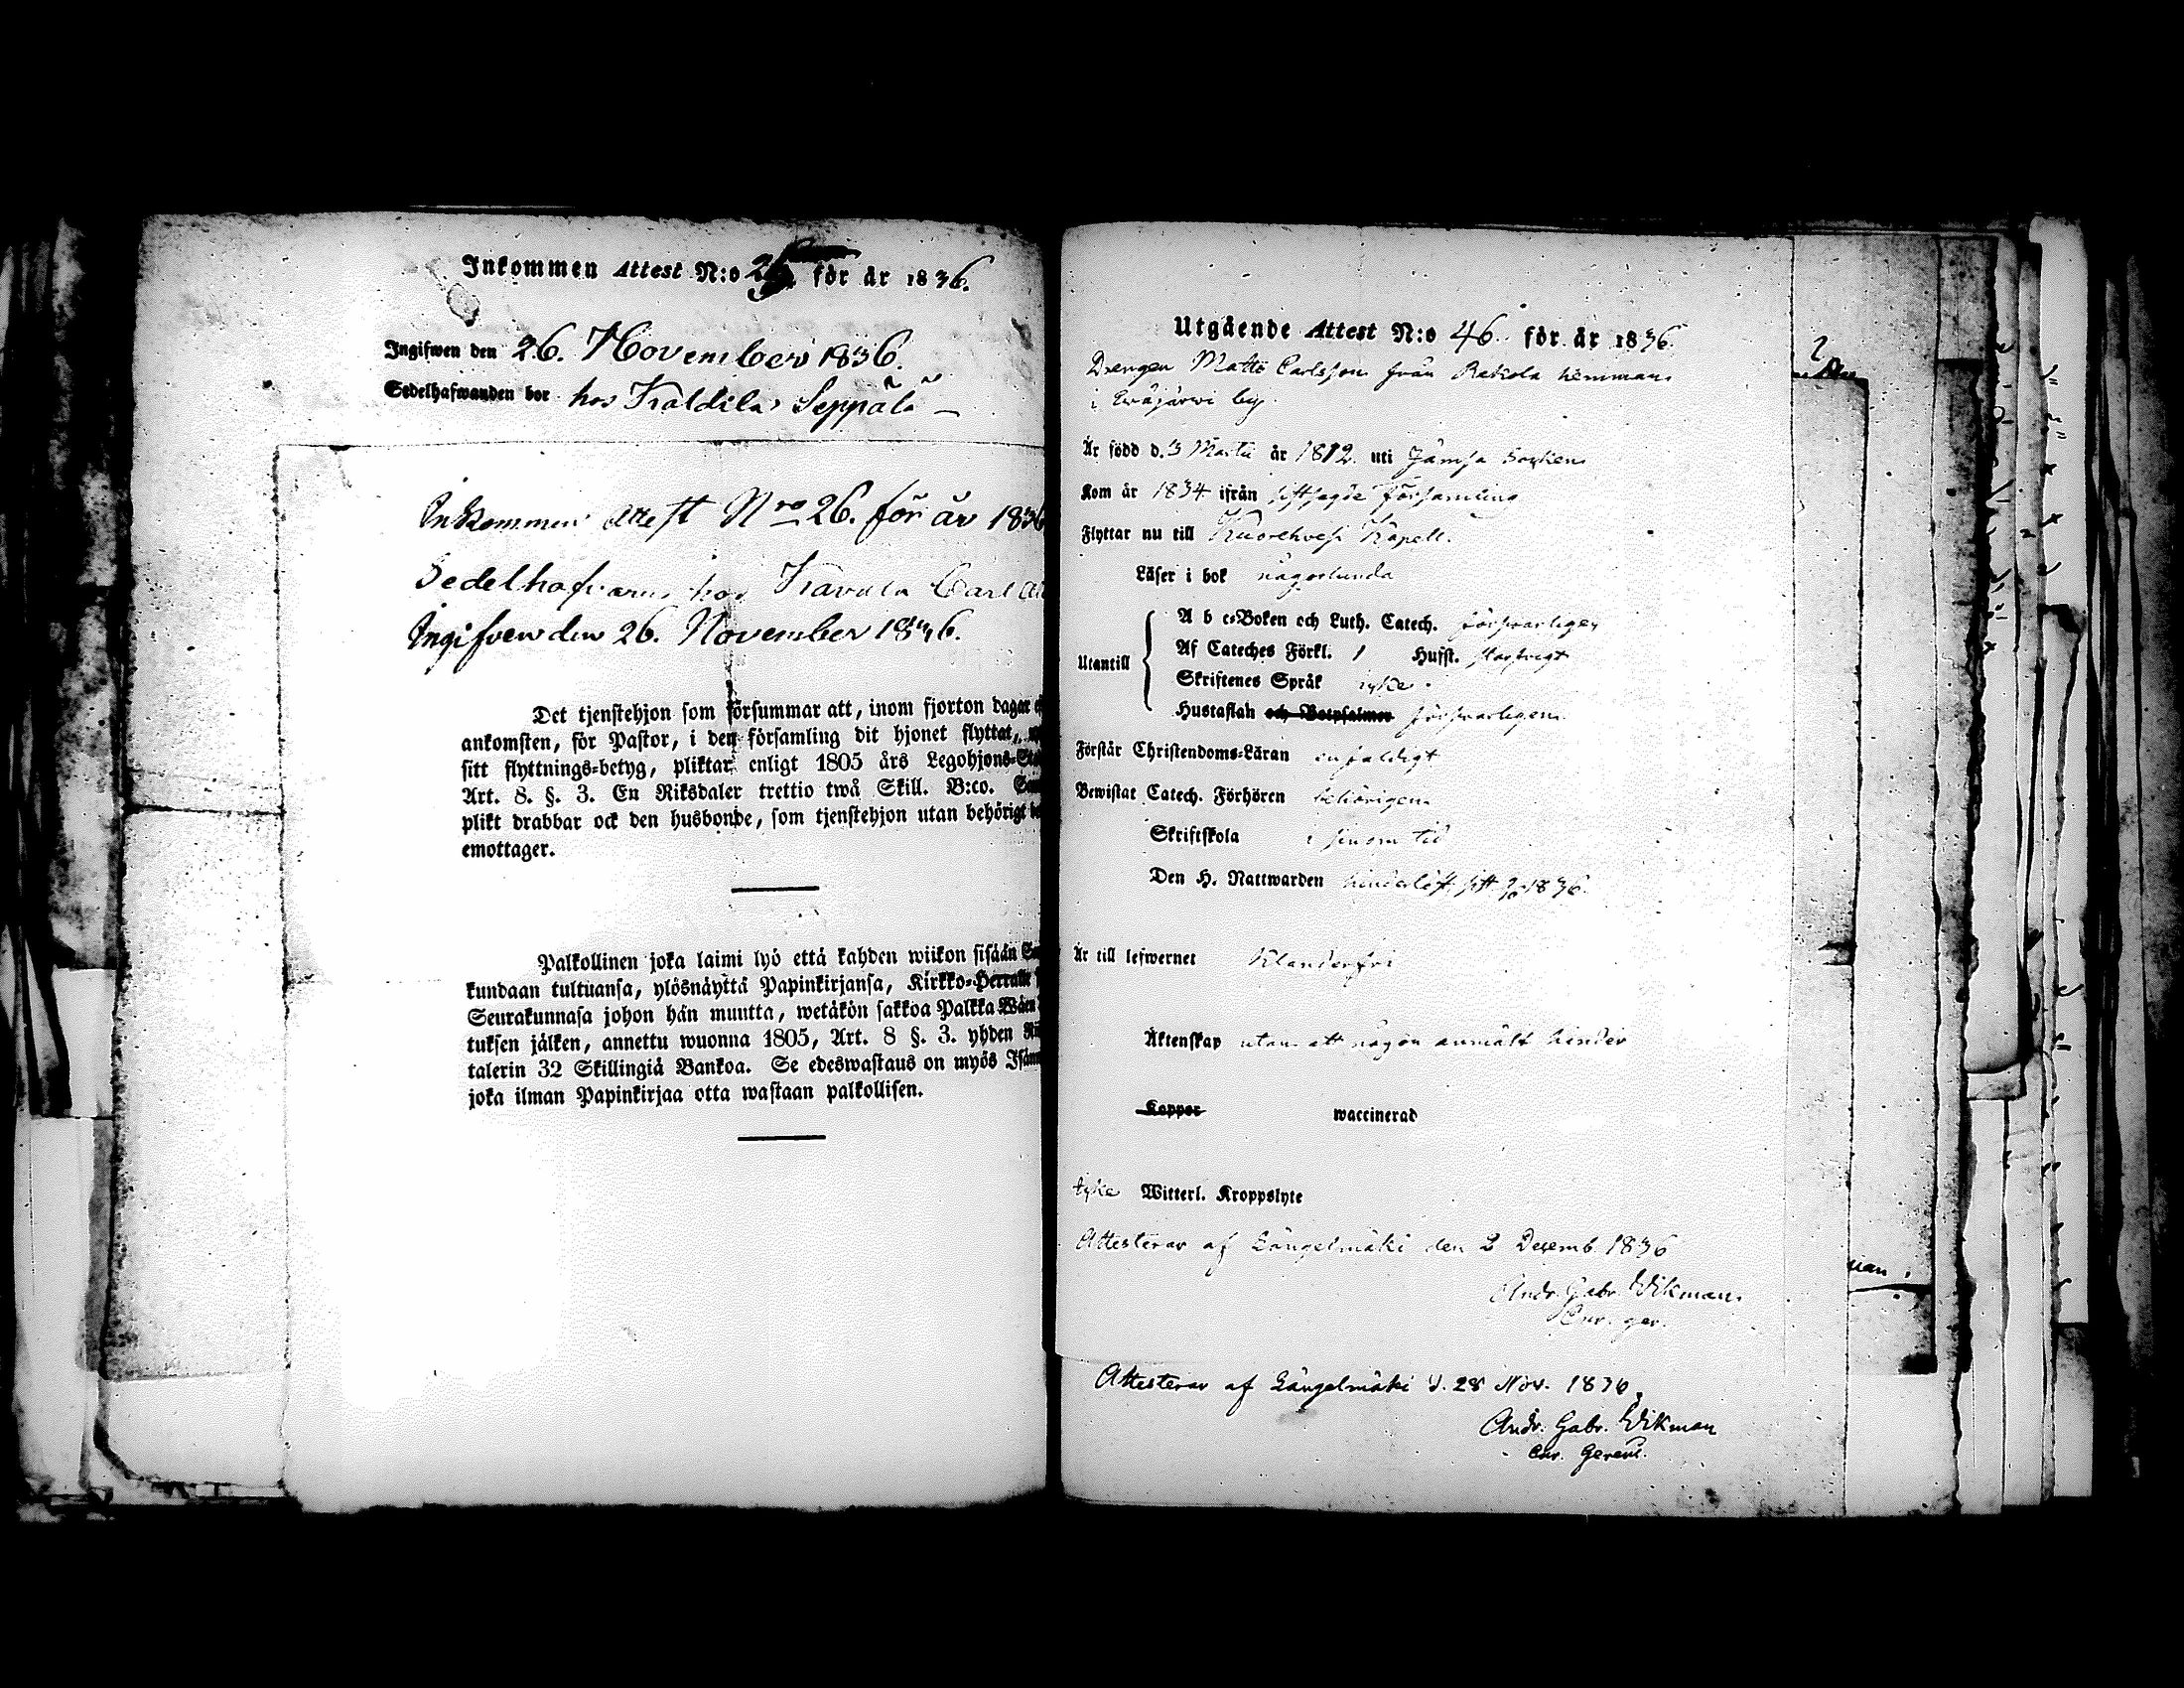 Inkommen Attest N:o 25. för år 1836.
Ingifwen den 26. November 1836.
Sedelhafwanden bor hos Traldila Seppälä
Inkommen Attest Nro 26. för år 1836
Sedelhafvarns hos Carl
Ingifven den 26. November 1836.
Det tjenstehjon som försummar att, inom fjorton dagar
ankomsten, för Pastor, i den församling dit hjonet flyttat,
sitt flyttnings-betyg, pliktar enligt 1805 års Legohjons-
Art. 8. §. 3. En Riksdaler trettio twå Skill. B:co.
plikt drabbar ock den husbonde, som tjenstehjon utan behörigt
emottager.
Palkollinen joka laimi lyö että kahden wiikon sisään
kundaan tultuansa, ylösnäyttä Papinkirjansa, Kirkko-Herralle
Seurakunnasa johon hän muutta, wetäkön sakkoa Palkka Wäen
tuksen jälken, annettu wuonna 1805, Art. 8 §. 3. yhden
talerin 32 Skillingiä Bankoa. Se edeswastaus on myös
joka ilman Papinkirjaa otta wastaan palkollisen.
Utgående Attest N:o 46. för år 1836.
Drengen Matts Carlsson från Rekola hemman
i Eräjärwi by.
Är född d. 3 Martii år 1812. uti Jämsä Socken
Kom år 1834 ifrån sistsagde församling
Flyttar nu till Kuorehvesi Kapell.
Läser i bok någorlunda
Utantill
A b c-Boken och Luth. Catech. försvarligen
Af Cateches Förkl. 1 Hufst.
Skriftenes Språk icke
Hustaflan och Botpsalmer försvarligen
Förstår Christendoms-Läran enfaldigt
Bewistat Catech. Förhören behörigen
Skriftskola i sinom tid
Den H. Nattwarden sist 1836.
Är till lefwernet klanderfri
Äktenskap utan att någon anmält hinder
Koppor waccinerad
icke Witterl. Kroppslyte
Attesterar af Längelmäki den 2 Decemb. 1836
Andr. Gabr. Wikman
Cur. ger.
Attesterar af Längelmäki d. 28 Nov. 1836.
Andr. Gabr. Wikman
Cur. Gerens.